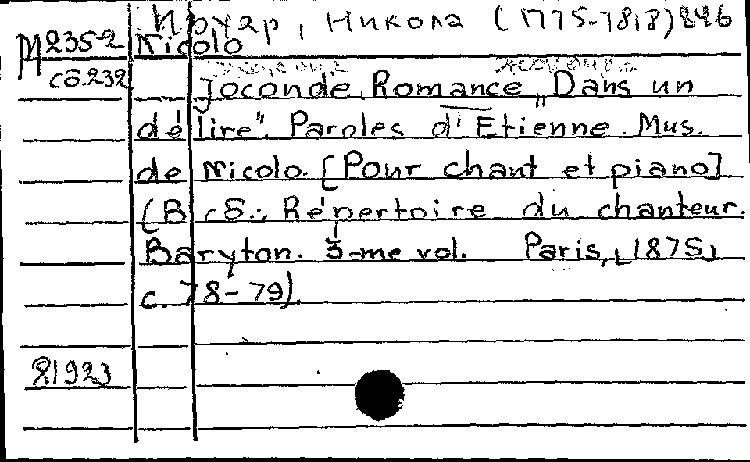 Изуар, Никола (1775-1818) 846
М 235-2 Nicolo
сб.232
Joconde. Romance „Dans un
délire". Paroles d'Etienne. Mus.
de Nicolo. [Pour chant et piano]
(В сб.: Répertoire du chanteur.
Baryton. 3-me vol. Paris, [1875]
с. 78-79).
81923